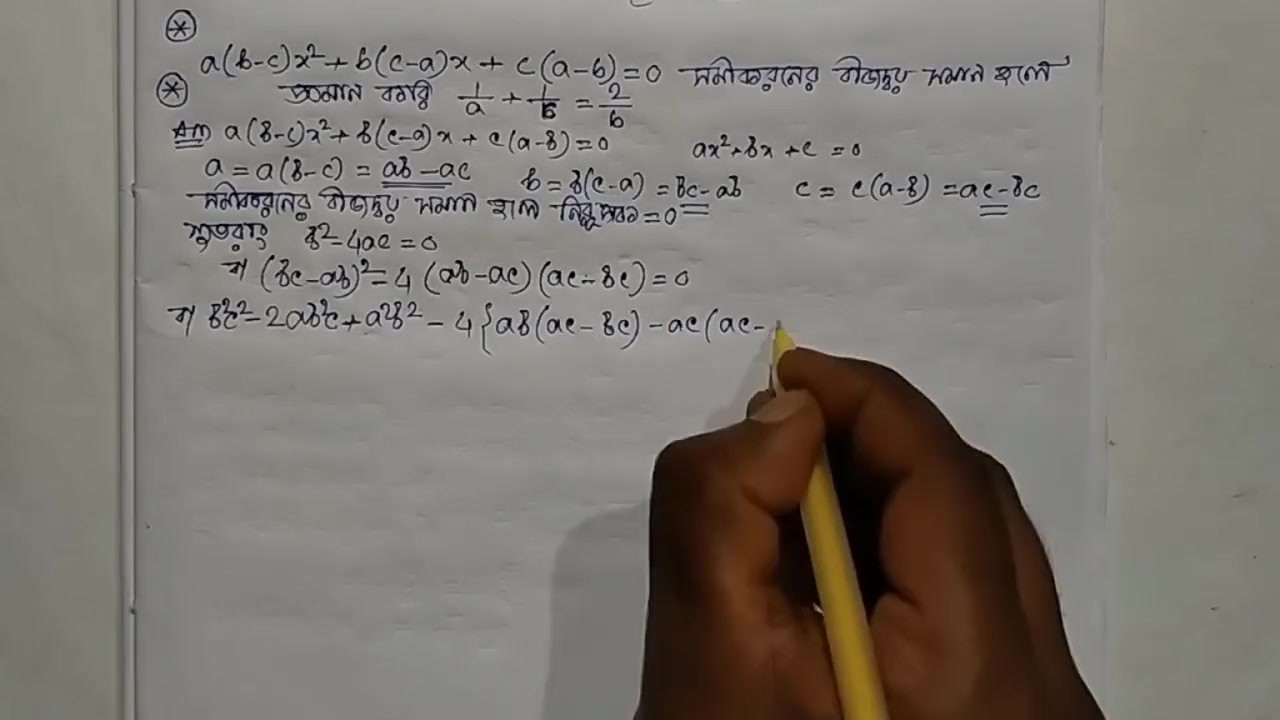 a(b-c)x²+ b(c-a)x + c(a-b)=0 সমীকরনের বীজদ্বয় সমান হলে
প্রমান করি 1/a + 1/c = 2/b
Ans a(b-c)x²+ b(c-a)x + c(a-b)=0 ax²+bx+c=0
a = a(b-c) = ab-ac b = b(c-a) = bc-ab c = c(a-b) = ac-bc
সমীকরনের বীজদ্বয় সমান হলে নিরূপক = 0
সুতরাং b²-4ac=0
বা (bc-ab)²-4(ab-ac)(ac-bc)=0
বা b²c²-2ab²c+a²b²-4{ab(ac-bc)-ac(ac-